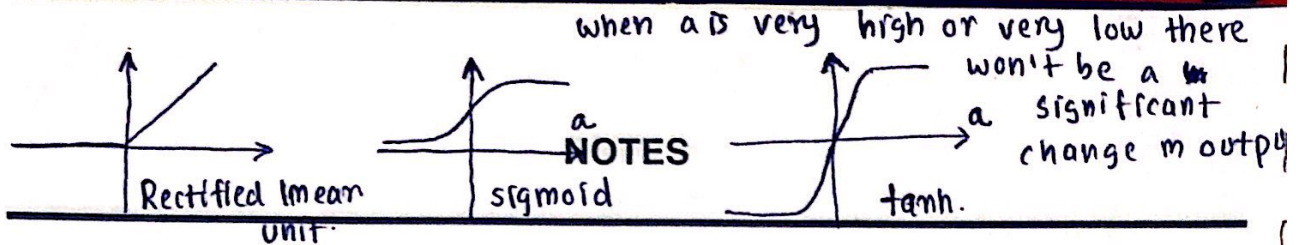 when a is very high or very low there
won't be a
significant
change in outpu
a
a
NOTES
Rectified linear
unit.
sigmoid
tanh.